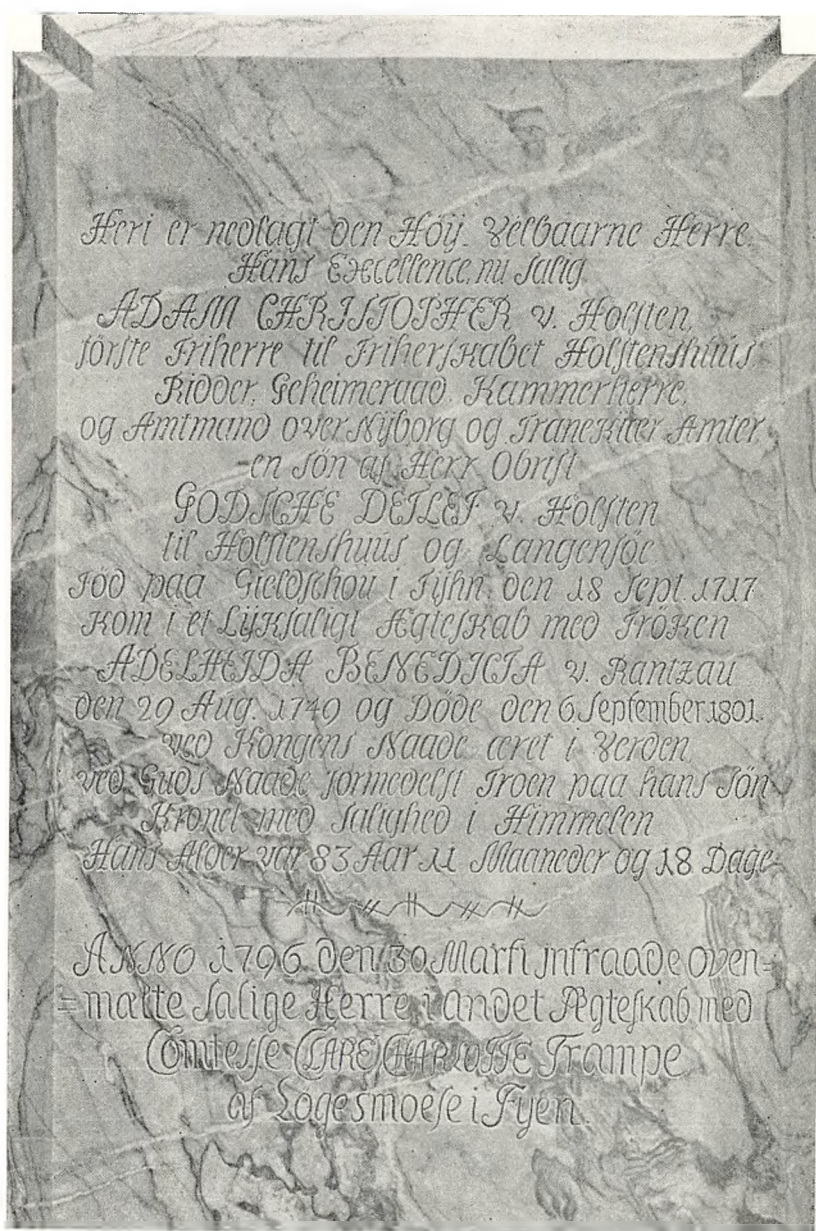 Heri er nedlagt den Høÿ-Velbaarne Herre,
Hans Excellence, nu salig,
ADAM CHRISTOPHER v. Holsten,
förste Friherre til Friherskabet Holstenshuus,
Ridder, Geheimeraad, Kammerherre,
og Amtmand over Nÿborg og Tranekiier Amter,
en Sön af Herr Obrist
GODSCHE DETLEF v. Holsten
til Holstenshuus og Langensöe
Föd paa Gieldschou i Fÿhn, den 18 Sept. 1717
Kom i et Lÿksaligt Ægteskab med Fröken
ADELHEIDA BENEDICTA v. Rantzau
den 29 Aug. 1749 og Döde den 6 September 1801.
ved Kongens Naade æret i Verden,
ved Guds Naade formedelst Troen paa hans Sön
Kronet med Salighed i Himmelen
Hans Alder var 83 Aar 11 Maaneder og 18 Dage
ANNO 1796 den 30 Marti intraade oven=
=mætte Salige Herre i andet Ægteskab med
Comtesse CLARE CHARLOTTE Trampe
af Løgesmoese i Fyen.